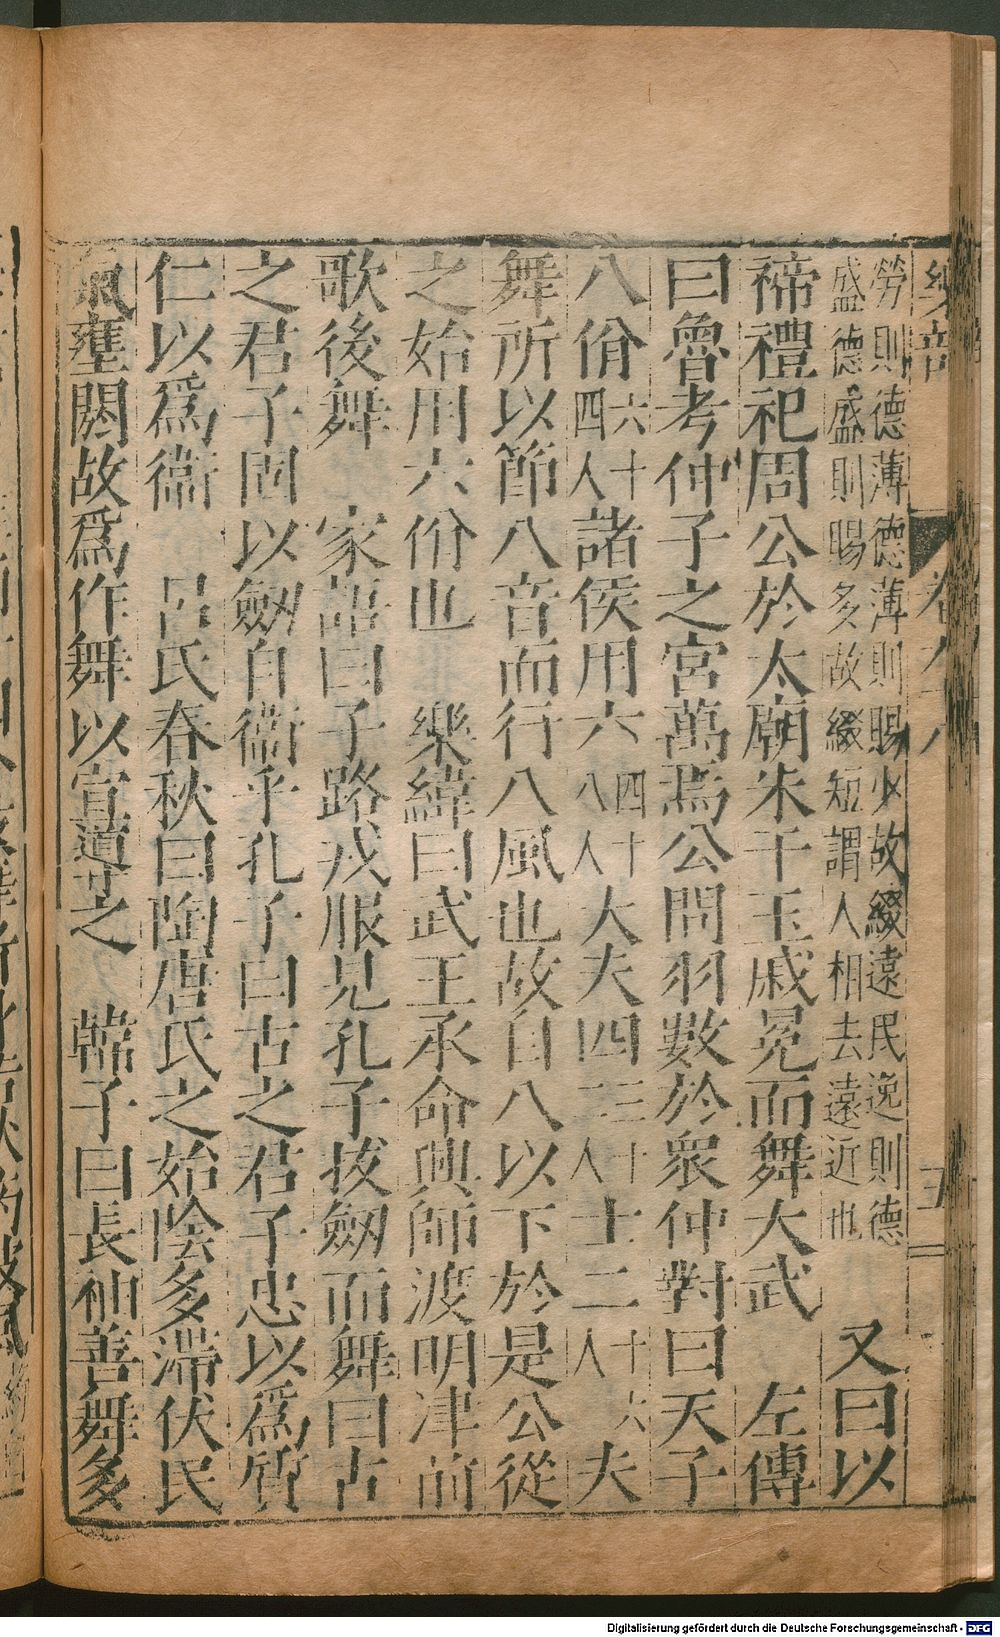 勞則德薄德薄則賜少故綴遠民逸則德
盛德盛則賜多故綴短謂人相去遠近也
又曰以
禘禮祀周公於太廟朱干玉戚冕而舞大武 左傳
曰魯考仲子之宮萬焉公問羽數於衆仲對曰天子
八佾六十四人諸侯用六四十八人大夫四三十二人士二十六人夫
舞所以節八音而行八風也故自八以下於是公從
之始用六佾也 樂緯曰武王承命興師渡明津前
歌後舞 家語曰子路戎服見孔子拔劔而舞曰古
之君子固以劔自衞乎孔子曰古之君子忠以爲質
仁以爲衞 呂氏春秋曰陶唐氏之始陰多滯伏民
氣壅閼故爲作舞以宣導之 韓子曰長袖善舞多
Digitalisierung gefördert durch die Deutsche Forschungsgemeinschaft - DFG